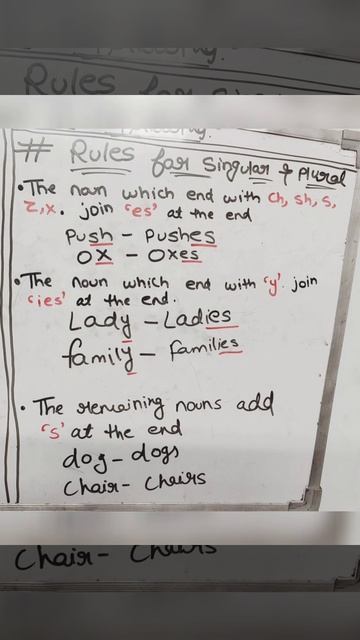 # Rules for Singular & Plural
• The noun which end with ch, sh, s,
z, x. join 'es' at the end
Push - Pushes
Ox - Oxes
• The noun which end with 'y' join
'ies' at the end.
Lady - Ladies
family - families
• The remaining nouns add
's' at the end
dog - dogs
Chair - Chairs